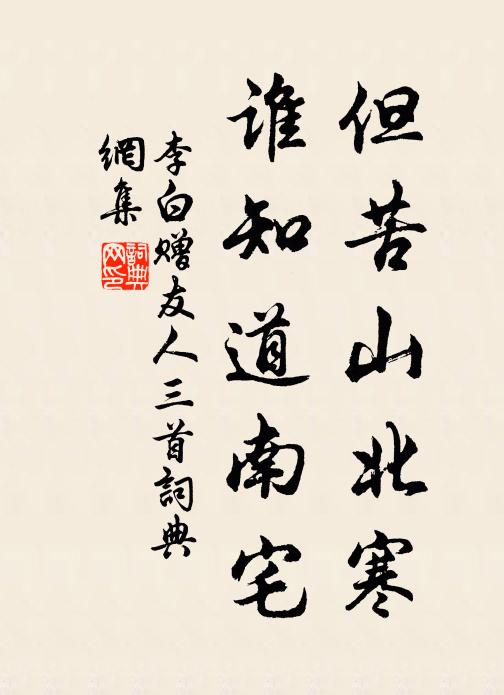 但苦山北寒
谁知道南宅
李白赠友人三首詞典
網集
詞典网印